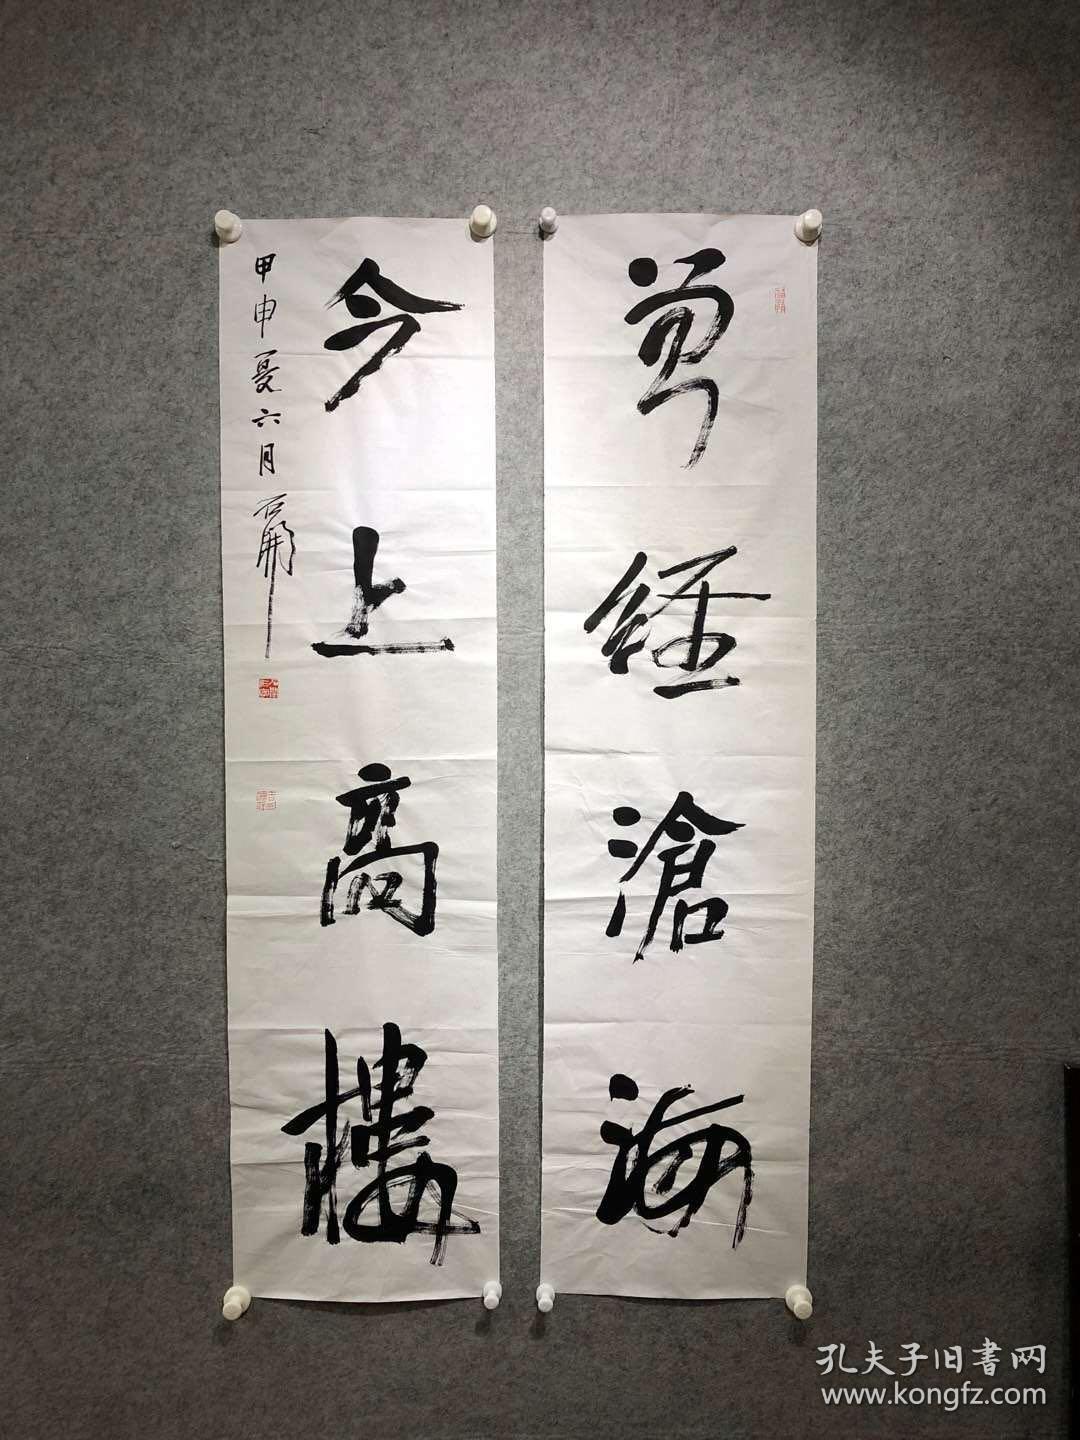 曾經滄海
今上高樓
甲申夏六月 石開
孔夫子旧書网
www.kongfz.com